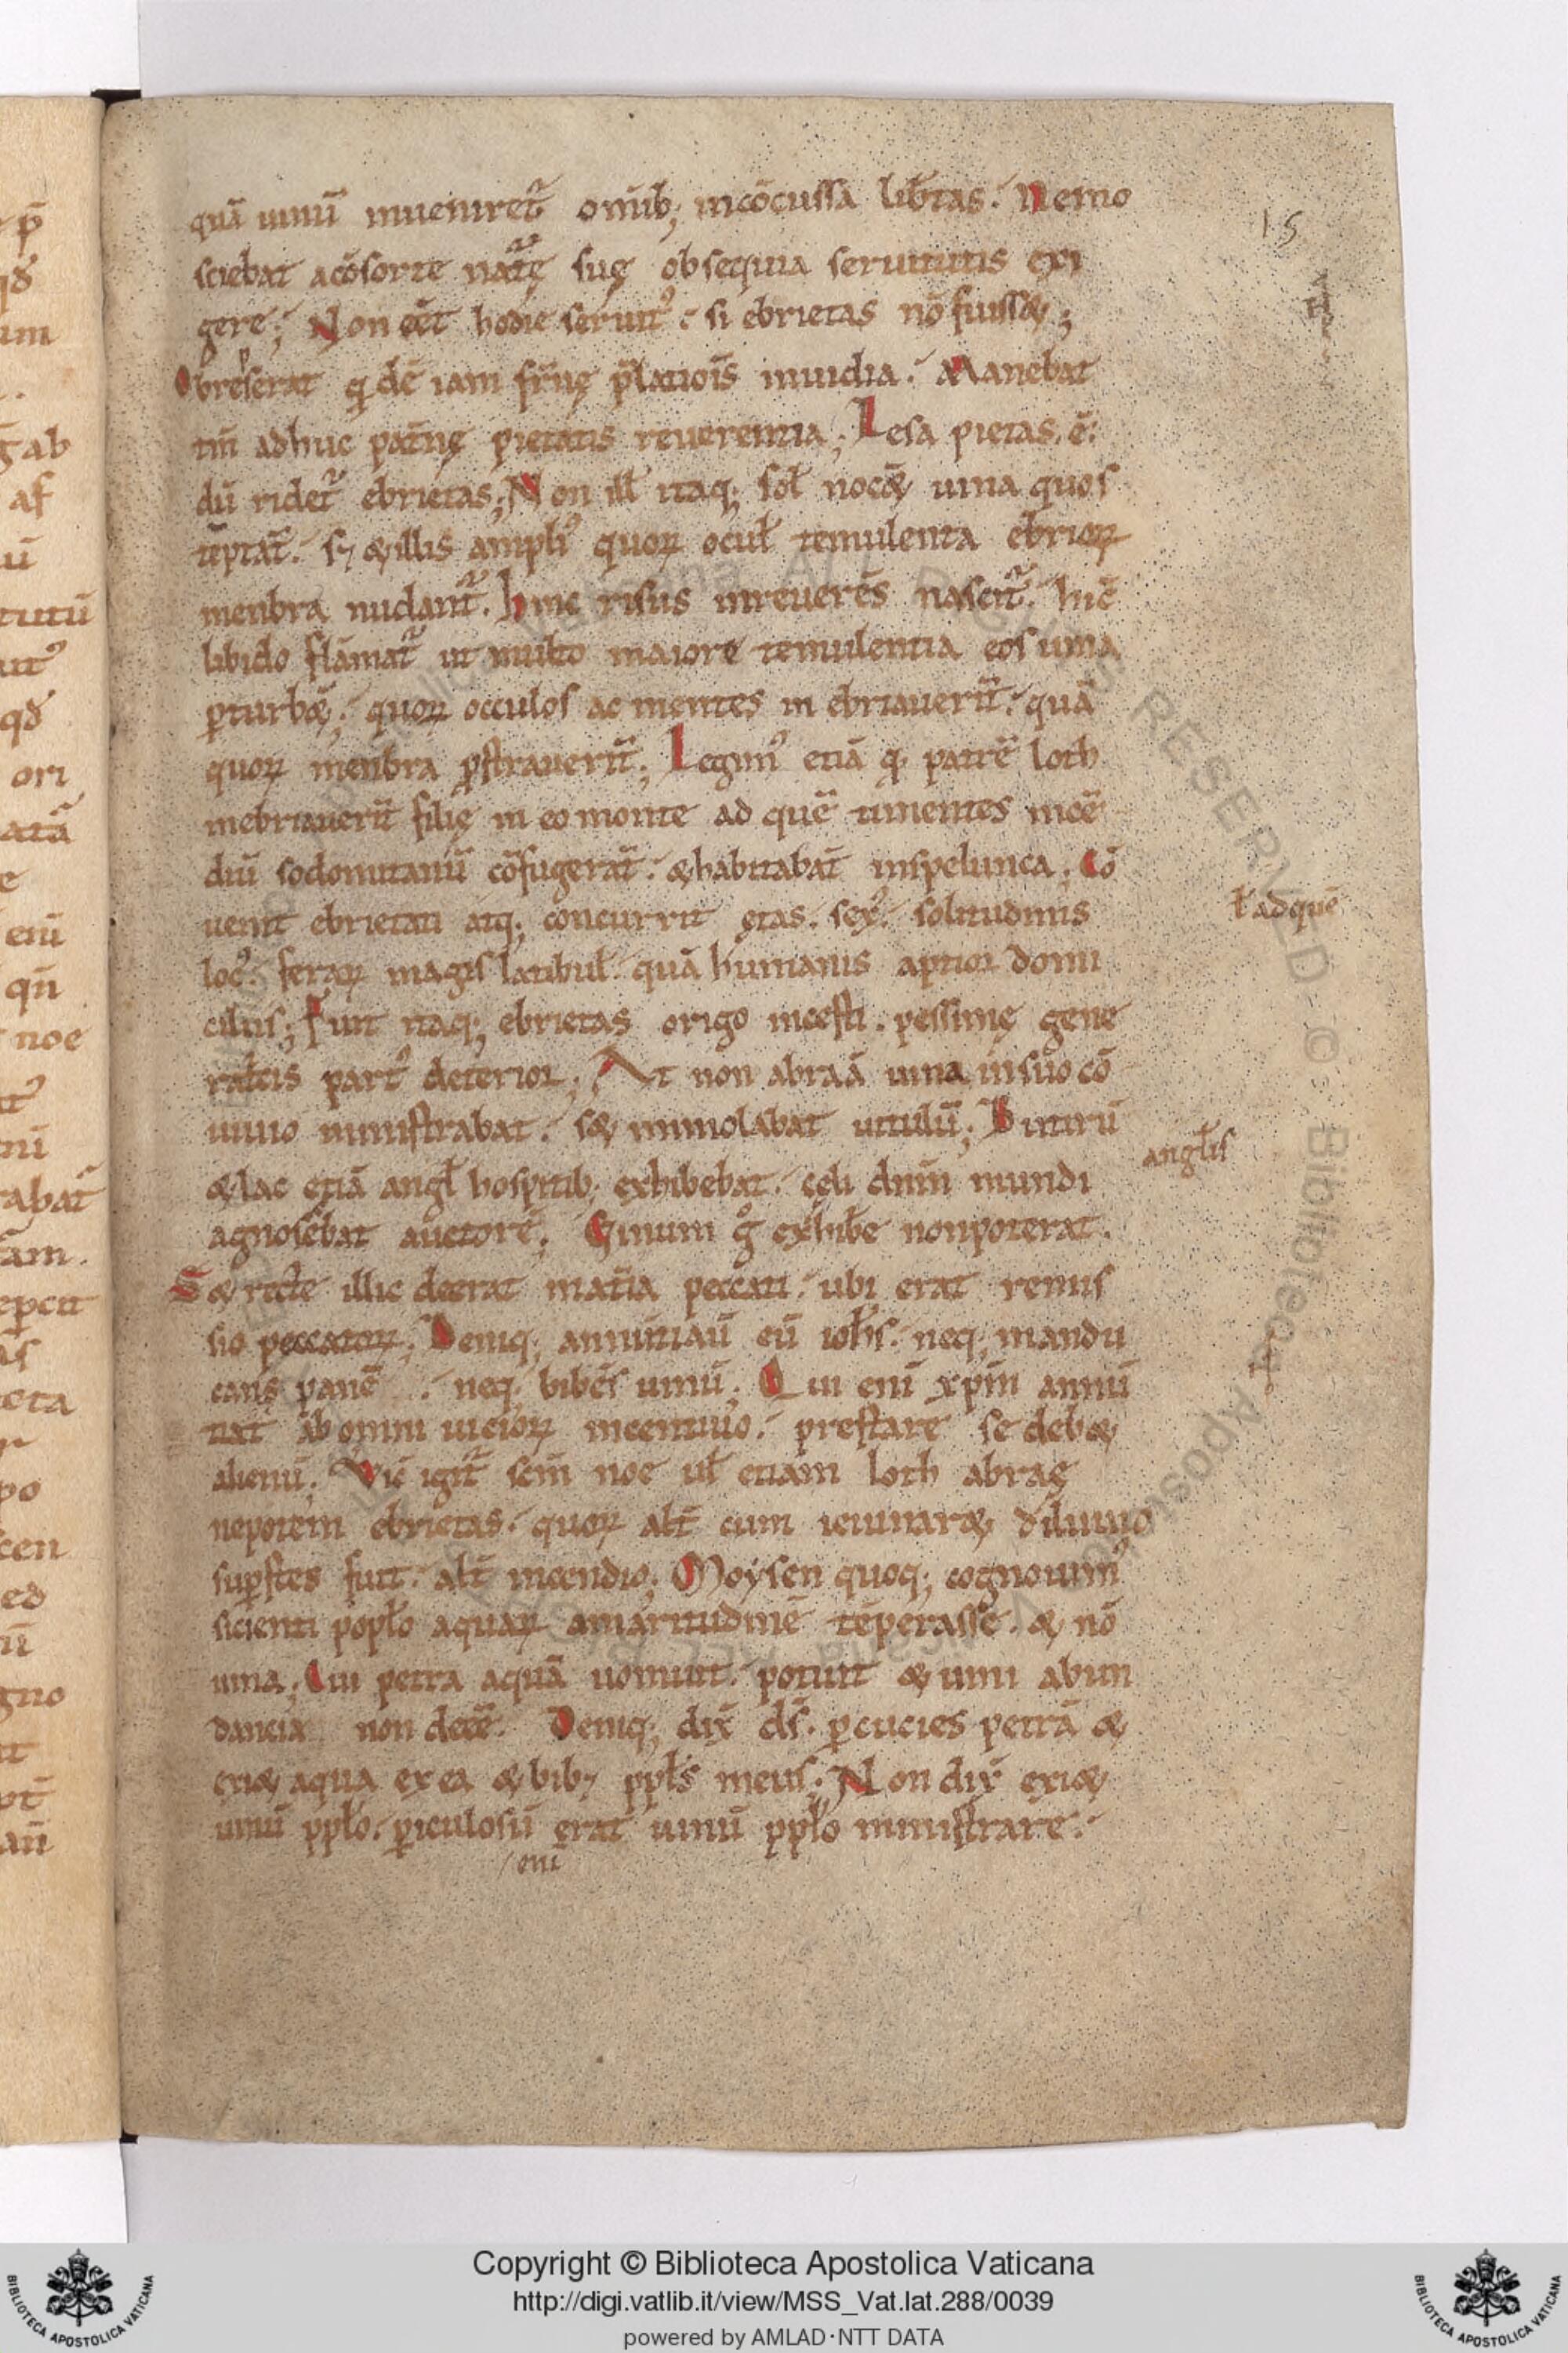 quā uinū inueniret᷑ omīb; incōcussa lib̄tas. Nemo
sciebat acōsorte nat᷑ę suę obsequia seruitutis exi
gere; Non eēt hodie seruit᷒ si ebrietas nō fuiss&;
Obrepserat qͥdē iam fr̄nę p̄latiōis inuidia. Manebat
tn̄ adhuc pat̄nę pietatis reuerentia; Lesa pietas. ē.
dū ridet᷑ ebrietas; Non ill̄ itaq; sol̄ noc& uina quos
tēptāt. s; & illis ampli᷒ quoꝝ ocul̄ temulenta ebrioꝝ
menbra nudant᷑. hinc risus inreuerēs nascit᷑. hinc
libido flāmat᷑ ut multo maiore temulentia eos uina
ꝑturb&; quoꝝ occulos ac mentes in ebriauerūt. quā
quoꝝ menbra ꝓstrauerūt; Legim᷒ etiā q. patrē loth
inebriauerūt filię in eo monte ad quē timentes incē
diū sodomitanū cōfugerāt. & habitabāt inspelunca; Cō
uenit ebrietati atq; concurrit ętas. sex᷒. solitudinis
loc᷒. feraꝝ magis latibul̄. quā humanis aptior domi
ciliis; Fuit itaq; ebrietas origo incesti. pessimę gene
ratiōis part᷒ deterior; At non abraā uina insuo cō
uiuio ministrabat. s& immolabat uitulū; Butirū
& lac etiā angl̄ hospitib; exhibebat. cęli dn̄m mundi
agnoscebat auctorē; Vinum gͦ exhibe nonpoterat.
S& recte illic deerat mat̄ia peccati. ubi erat remis
sio peccatoꝝ; Deniq; annuntiaū eū ioh̄s. neq; mandu
cans panē. neq; bibēs uinū; Qui eni xp̄m annū
tiat ab omni uicioꝝ incentiuo. prestare se deb&
alienū; Vic̄ igit᷑ scm̄ noe ul̄ etiam loth abraę
nepotem ebrietas. quoꝝ alt̄ cum ieiunar& diluuio
suꝑstes fuit. alt̄ incendio; Moysen quoq; cognouim᷒
sicienti popl̄o aquaꝝ amaritudinē tēperasse. & nō
uina; Cui petra aquā uomuit. potuit & uini abun
dancia non deēe. Deniq; dix̄ ds̄. ꝑcucies petrā &
exi& aqua ex ea & bib; ppl̄s meus; Non dix̄ exi&
uinū ppl̄o. ꝑiculosū erat uinū ppl̄o ministrare.
eni
15
ł adquē
angl̄is
p̄
qd̄
um
gab
af
ū
tutū
ut᷒
qd̄
ori
atā
e
eiū
qn̄
noe
ni
rabat᷑
am.
epcit
cta
po
cen
ed
ū
gno
it
an̄
Copyright © Biblioteca Apostolica Vaticana
http://digi.vatlib.it/view/MSS_Vat.lat.288/0039
powered by AMLAD·NTT DATA
BIBLIOTECA APOSTOLICA VATICANA
BIBLIOTECA APOSTOLICA VATICANA